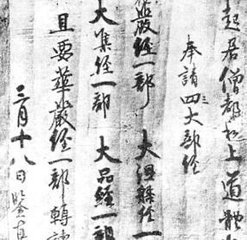 起居僧都和上道體
奉請四大部經
嚴經一部 大涅槃經一
大集經一部 大品經一部
且要華嚴經一部轉讀
三月十八日鑒真